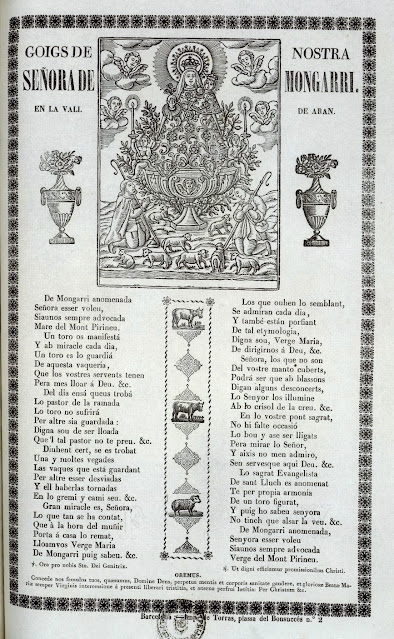 GOIGS DE NOSTRA
SEÑORA DE MONGARRI.
EN LA VALL DE ARAN.
De Mongarri anomenada
Señora esser voleu,
Siaunos sempre advocada
Mare del Mont Pirineu.
Un toro os manifestá
Y ab miracle cada dia,
Un toro es lo guardiá
De aquesta vaqueria,
Que los vostres servents tenen
Pera mes lloar á Deu. &c.
Del dia enuá queus trobá
Lo pastor de la ramada
Lo toro no sufrirá
Per altre sia guardada:
Digna sou de ser lloada
Que'l tal pastor no te preu. &c.
Diuhent cert, se es trobat
Una y moltes vegades
Las vaques que está guardant
Per altre esser desviadas
Y ell haberlas tornadas
En lo gremi y cami seu. &c.
Gran miracle es, Señora,
Lo que tan se ha contat,
Que à la hora del muñir
Porta á casa lo remat,
Lloamvos Verge Maria
De Mongarri puig saben. &c.
Los que ouhen lo semblant,
Se admiran cada dia,
Y també están porfiant
De tal etymologia,
Digna sou, Verge Maria,
De dirigirnos á Deu, &c.
Las vaques, que no son
Del vostre manto cuberts,
Podrá ser que ab blassons
Digan alguns desconcerts,
Lo Senyor los illumine
Ab lo crisol de la creu. &c.
En lo vostre pont sagrat,
No hi falte occasió
Lo bou y ase ser lligats
Pera mirar lo Señor,
Y aixis no men admiro,
Sen servesque aqui Deu. &c.
Lo sagrat Evangelista
De sant Lluch es anomenat
Te per propria armonia
De un toro figurat,
Y puig ho sabeu senyora
No tinch que alsar la veu. &c.
De Mongarri anomenada,
Senyora esser voleu
Siaunos sempre advocada
Verge del Mont Pirineu.
℣. Ora pro nobis Sta. Dei Genitrix.
℟. Ut digni efficiamur promissionibus Christi.
OREMUS.
Concede nos famulos tuos, quæsumus, Domine Deus, perpetua mentis et corporis sanitate gaudere, et gloriosæ Beatæ Ma-
riæ semper Virginis intercessione à præsenti liberari tristitia, et æterna perfrui lætitia. Per Christum &c.
Barcelona: Imp. de Torras, plassa del Bonsuccés n.º 2